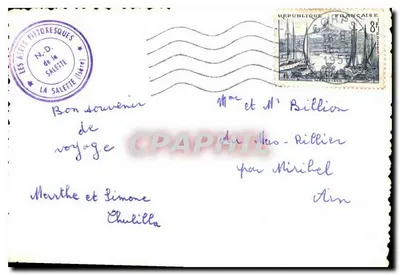 LES ALPES PITTORESQUES
N.D.
de la
SALETTE
LA SALETTE (Isère)
REPUBLIQUE FRANÇAISE
8f
Bon souvenir
de
voyage
Marthe et Simone
Mme et Mr Billion
du Mas-Rillier
par Miribel
Ain
CPAPHIL